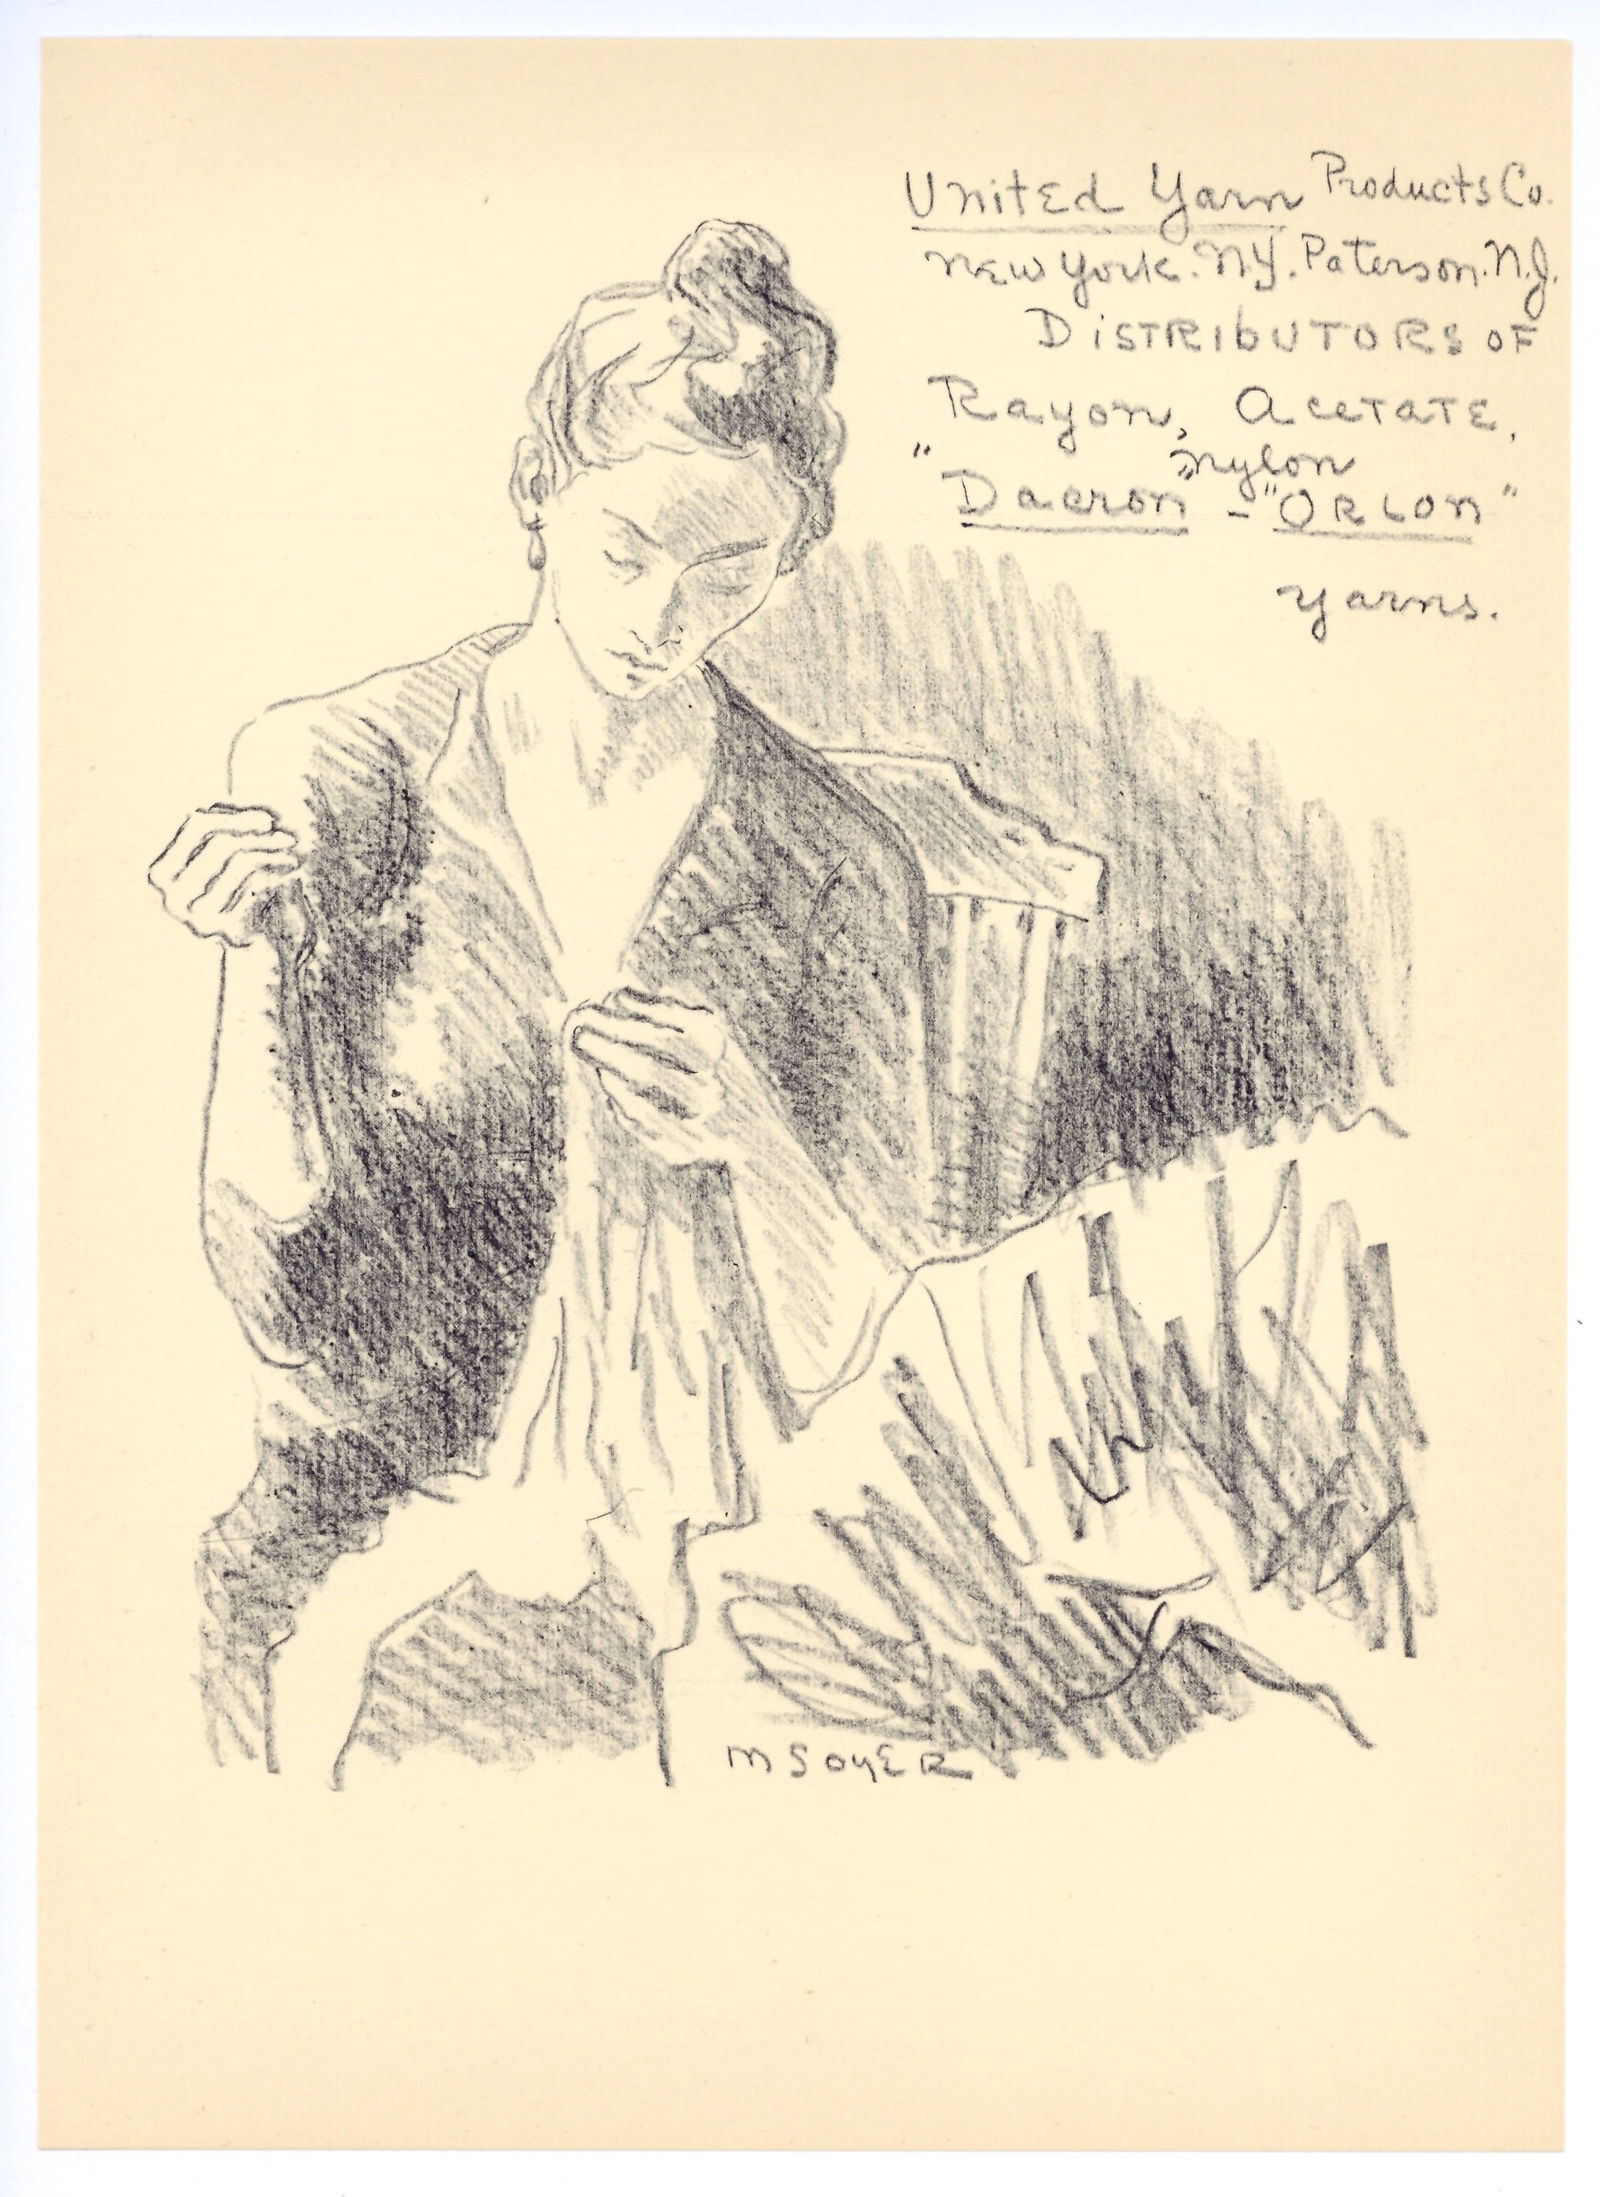 United Yarn Products Co.
New York. N.Y. Paterson. N.J.
DiSTRibUTORS OF
Rayon, AceTaTE,
"nylon
"Dacron - "ORLON"
yarns.
M SOYER